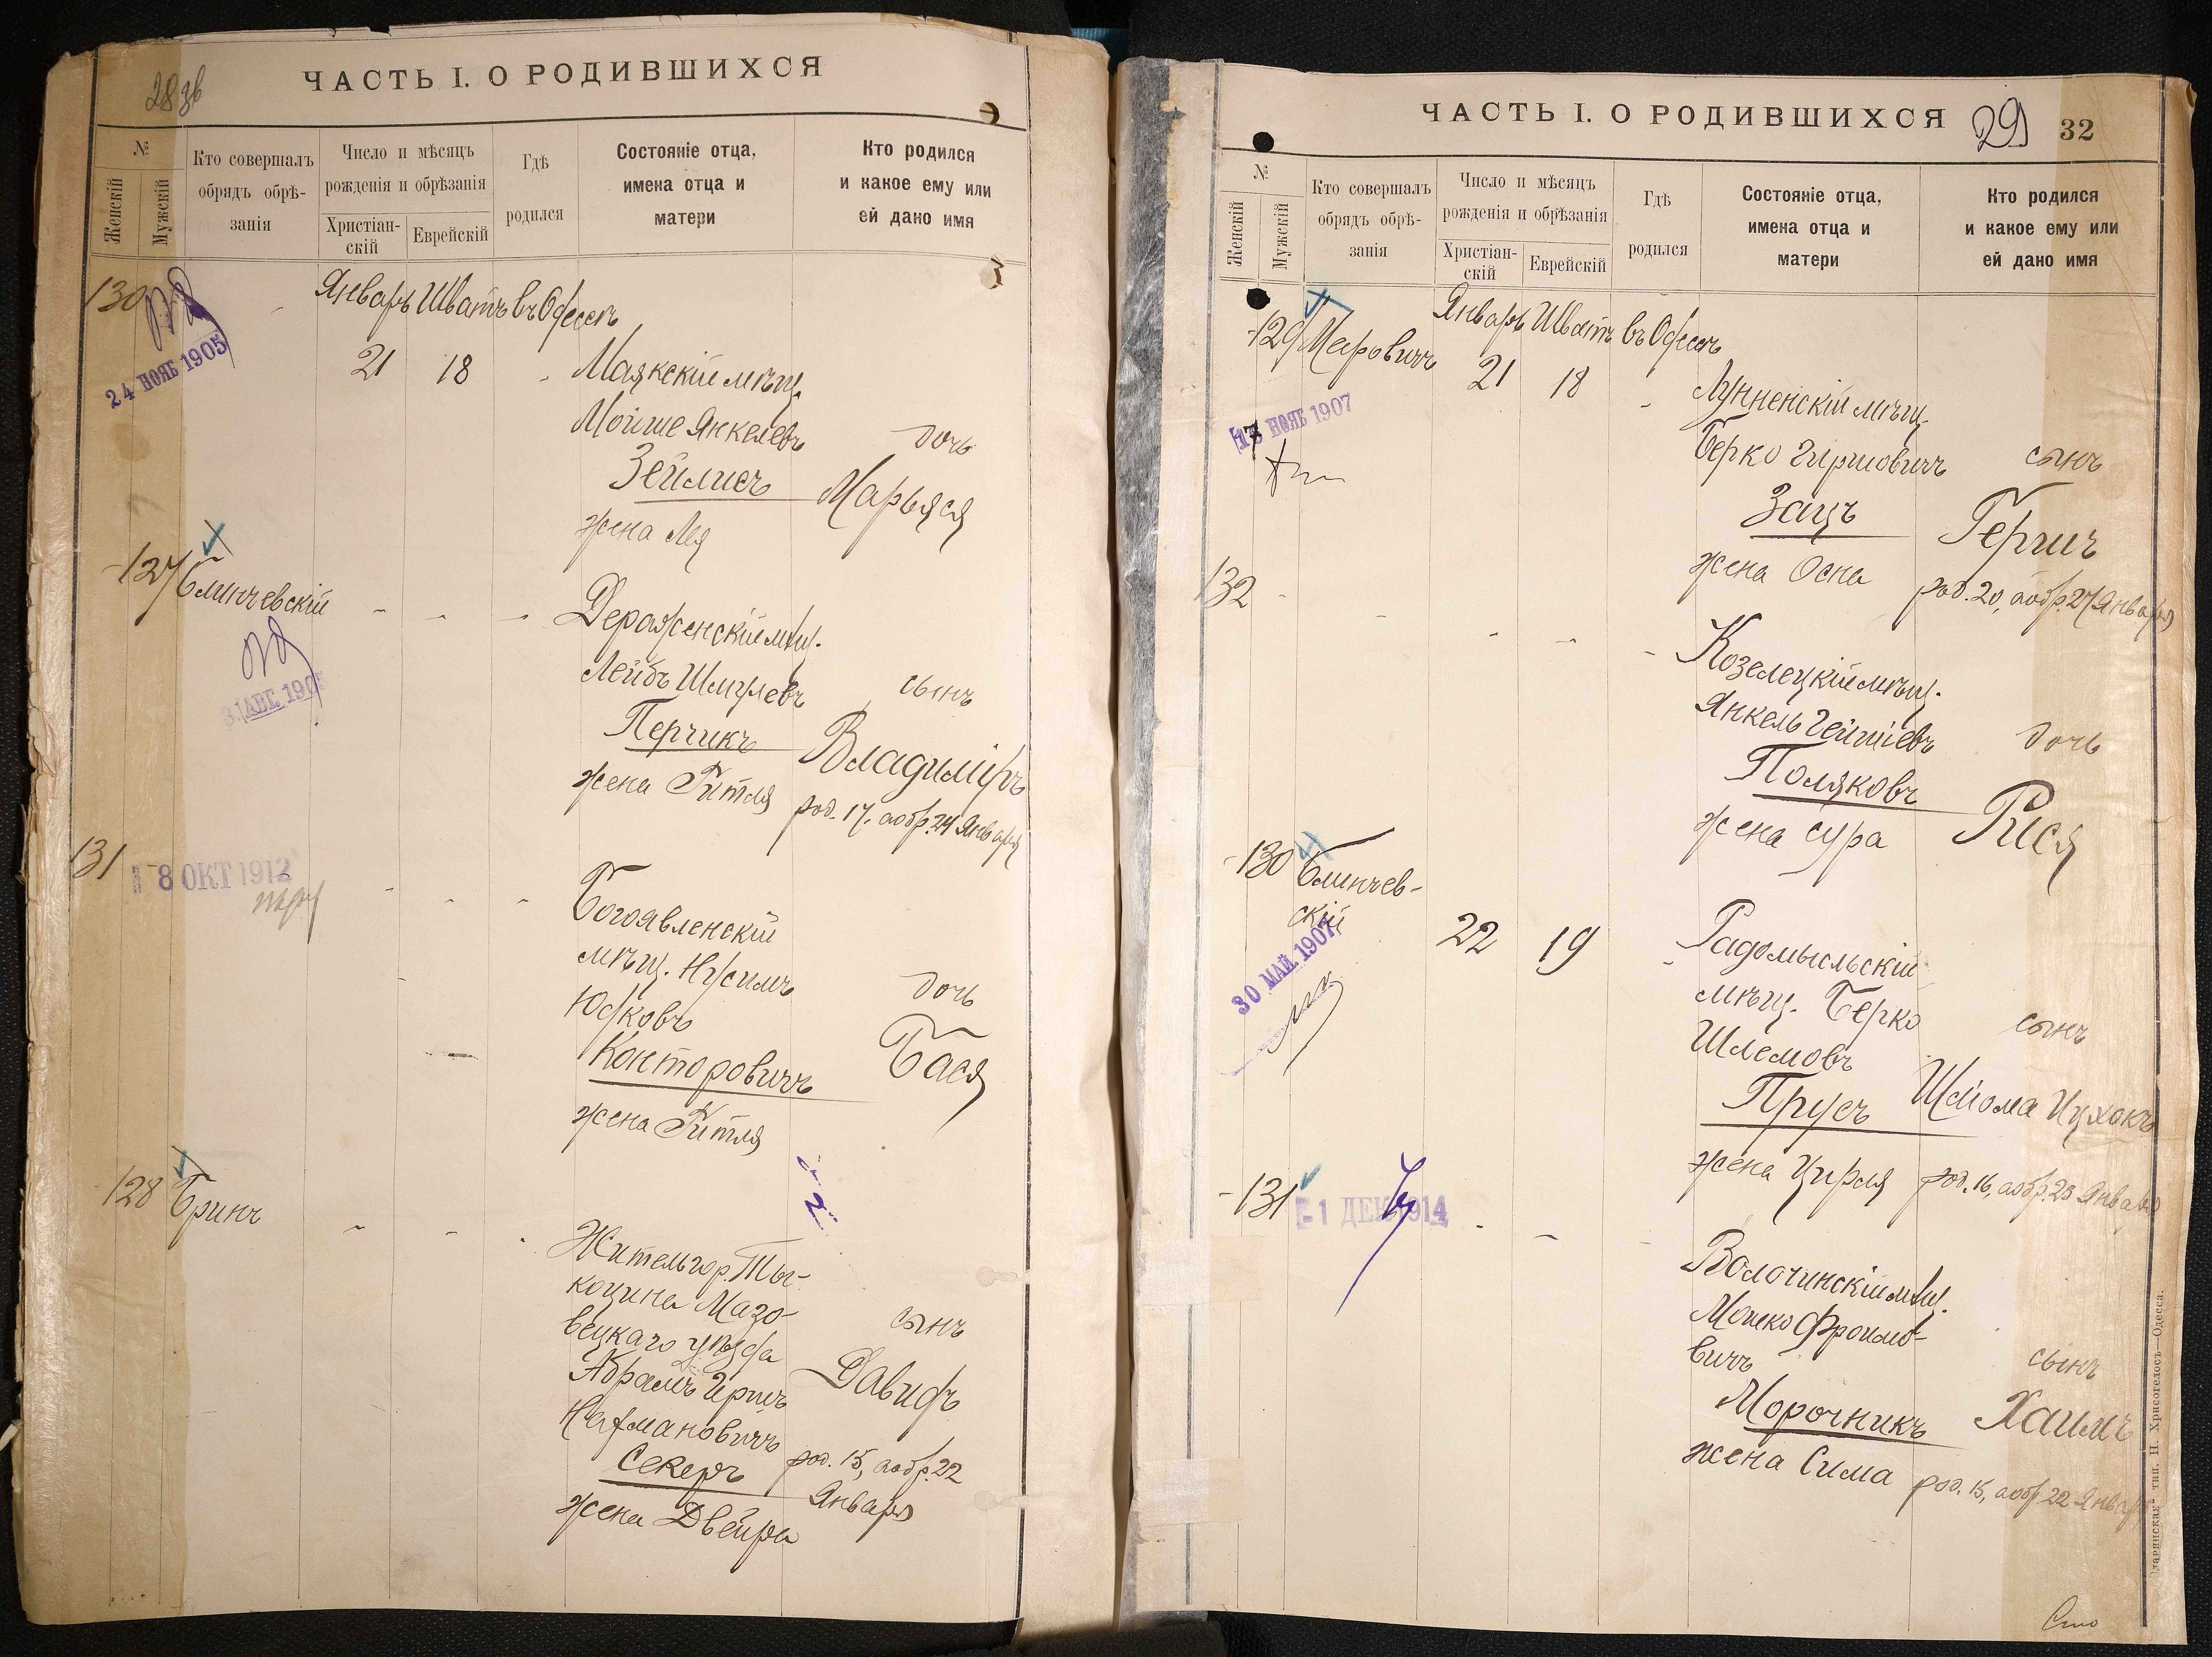 28 зв
ЧАСТЬ I. О РОДИВШИХСЯ
№
Женскій
Мужскій
Кто совершалъ
обрядъ обрѣ-
занія
Число и мѣсяцъ
рожденія и обрѣзанія
Христіан-
скій
Еврейскій
Гдѣ
родился
Состояніе отца,
имена отца и
матери
Кто родился
и какое ему или
ей дано имя
130
24 НОЯБ 1905
Январь Шватъ въ Одессѣ
21 18
Маякскій мѣщ.
Мойше Янкелевъ
Зейлисъ
жена Лея
дочь
Марьяся
127 Блинчевскій
31 АВГ. 190
Дераженскій мѣщ.
Лейбъ Шмулевъ
Перчикъ
жена Гитля
сынъ
Владиміръ
род. 17, а обр. 24 Января
131
8 ОКТ 1912
Богоявленскій
мѣщ. Нусимъ
Юдковъ
Канторовичъ
жена Гитля
дочь
Бася
128 Бринъ
Житель гор. Ты-
коцина Мазо-
вецкаго уѣзда
Абрамъ Гершъ
Нахмановичъ
Секеръ
жена Двейра
сынъ
Давидъ
род. 15, а обр. 22
Января
ЧАСТЬ I. О РОДИВШИХСЯ
29
32
№
Женскій
Мужскій
Кто совершалъ
обрядъ обрѣ-
занія
Число и мѣсяцъ
рожденія и обрѣзанія
Христіан-
скій
Еврейскій
Гдѣ
родился
Состояніе отца,
имена отца и
матери
Кто родился
и какое ему или
ей дано имя
129 Меровичъ
Январь Шватъ въ Одессѣ
21 18
НОЯБ 1907
Лунненскій мѣщ.
Берко Гиршовичъ
Зацъ
жена Осна
сынъ
Гершъ
род. 20, а обр. 27 Января
132
Козелецкій мѣщ.
Янкель
Поляковъ
жена Сура
дочь
Рися
130 Блинчев-
скій
30 МАЙ 1907
22 19
Радомысльскій
мѣщ. Берко
Шлемовъ
Прусъ
жена Цирля
сынъ
Шлёма Ицхокъ
род. 16, а обр. 23 Января
131
-1 ДЕК 1914
Волочинскій мѣщ.
Мошко Фроимо-
вичъ
Морочникъ
жена Сима
сынъ
Хаимъ
род. 15, а обр 22 Января
"Славянская" тип. Н. Хрисогелосъ—Одесса.